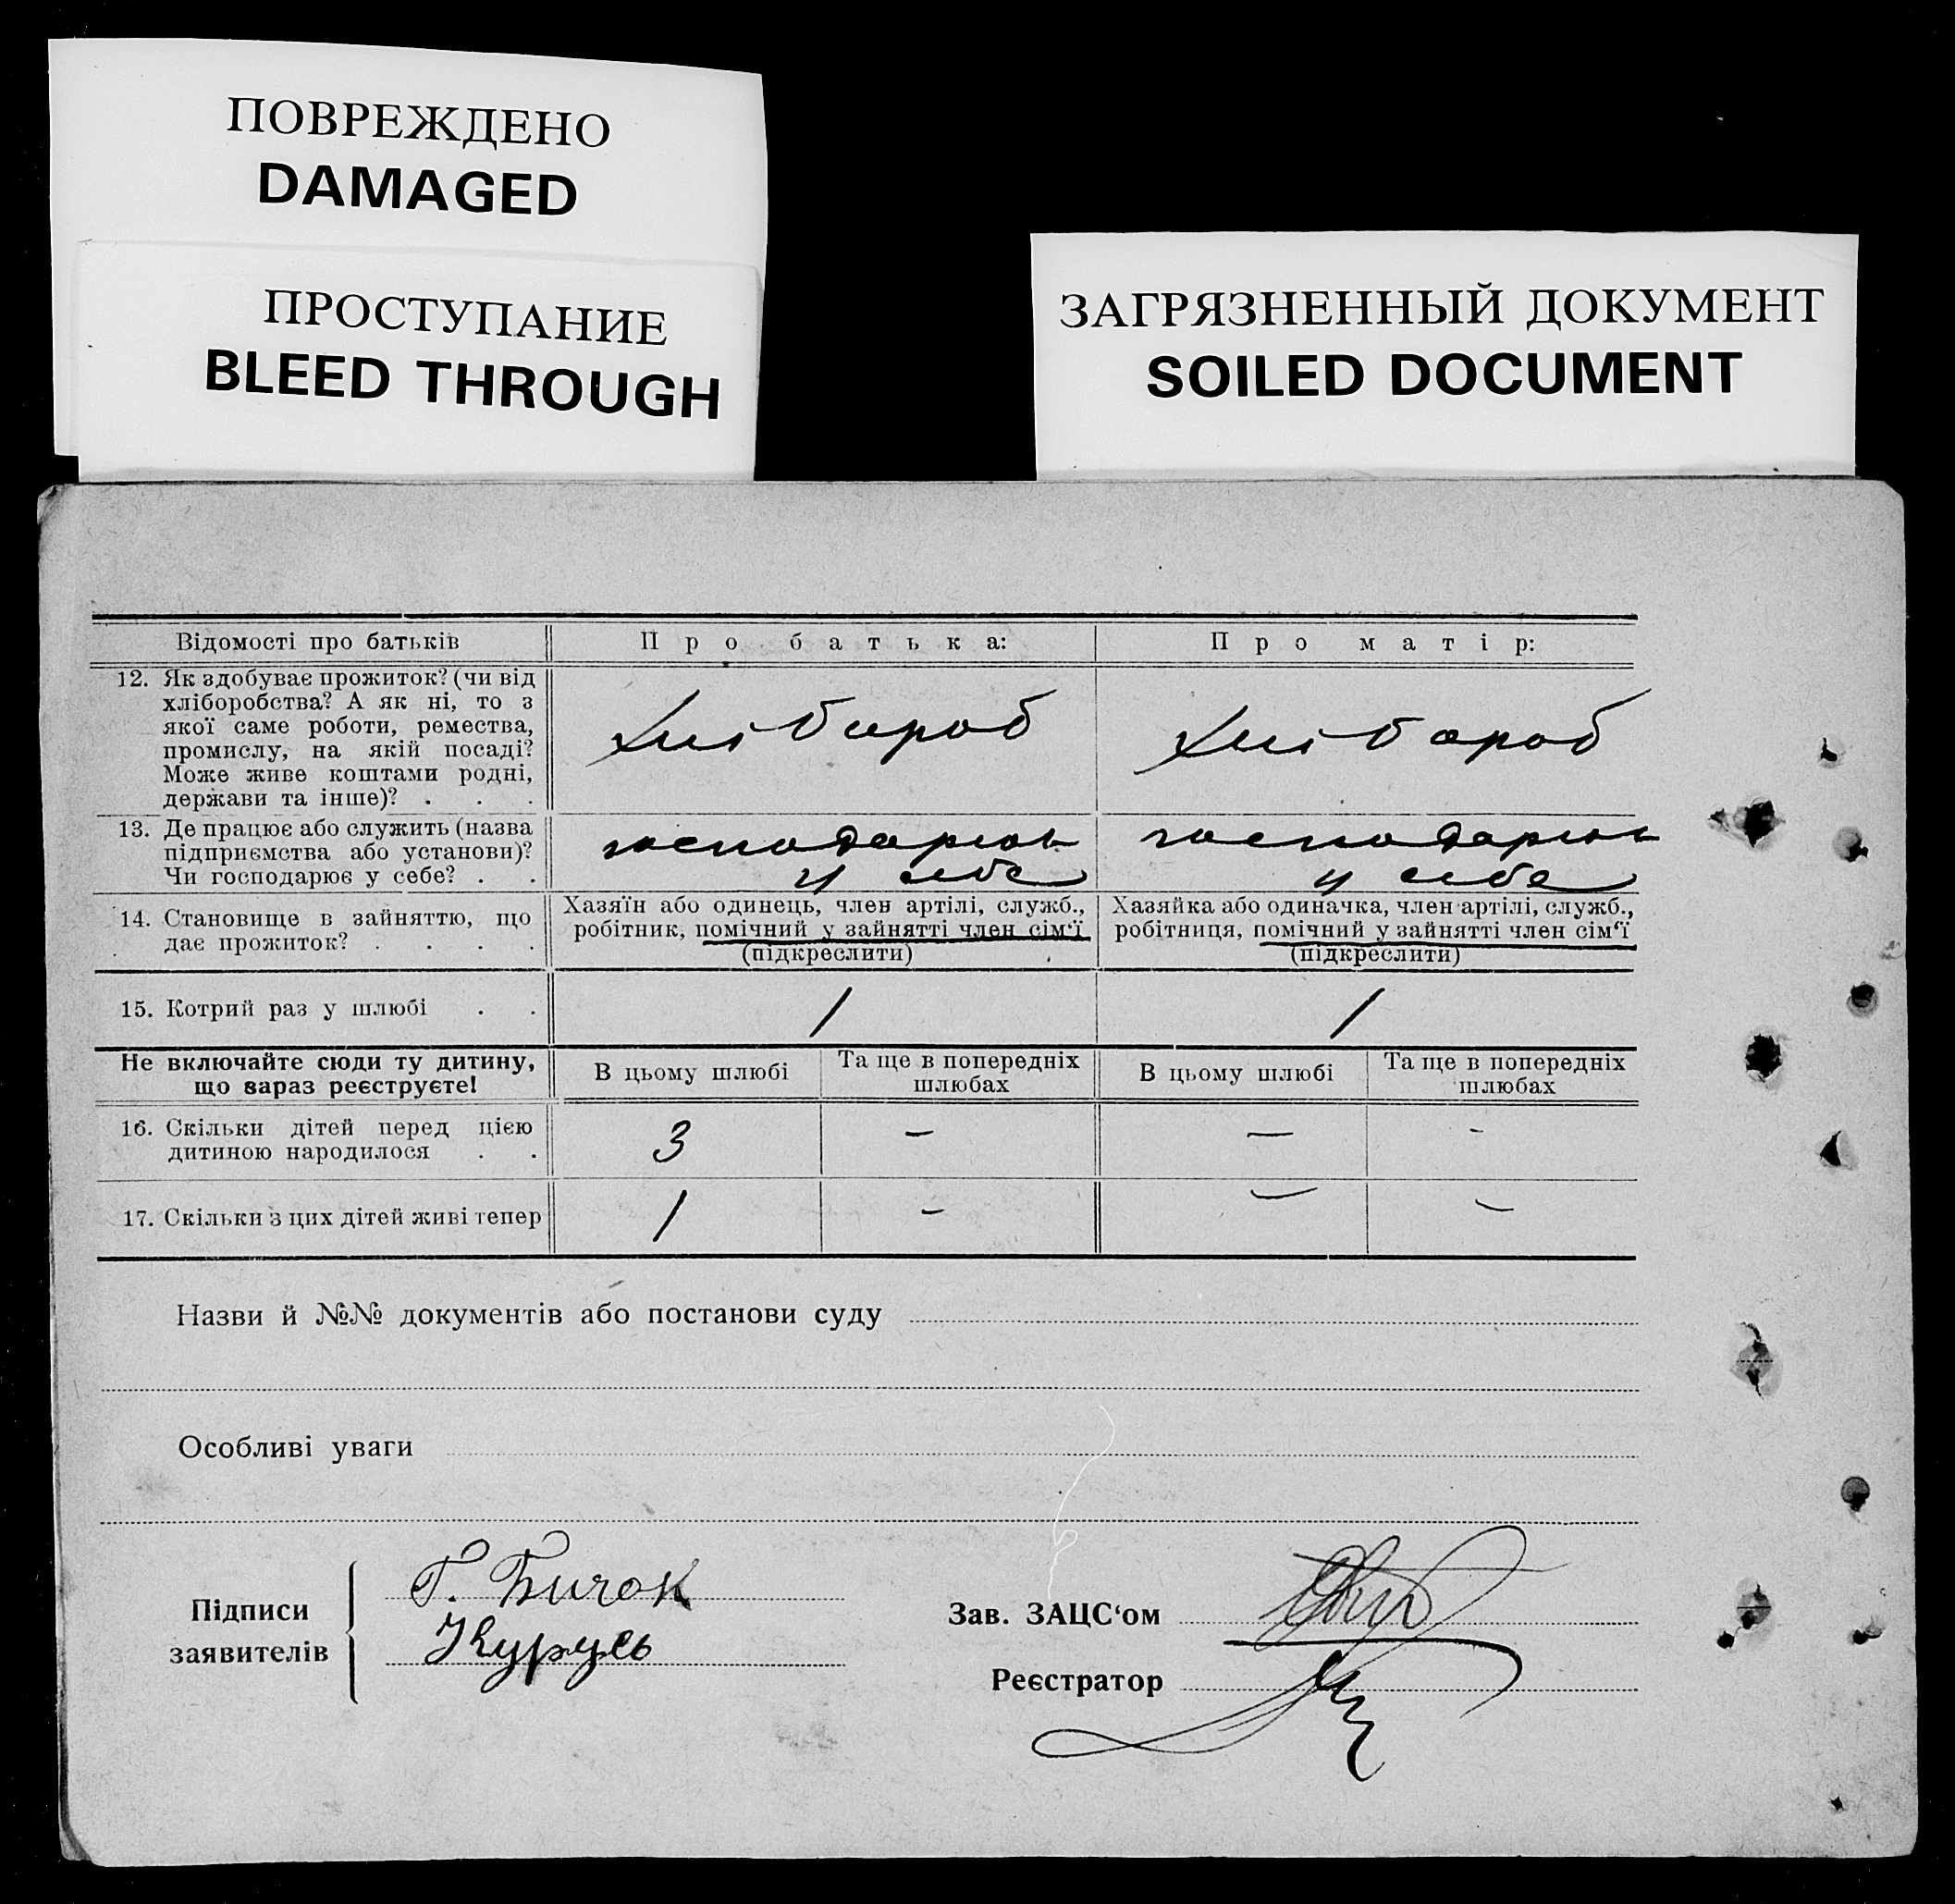 ПОВРЕЖДЕНО
DAMAGED
ПРОСТУПАНИЕ
BLEED THROUGH
ЗАГРЯЗНЕННЫЙ ДОКУМЕНТ
SOILED DOCUMENT
Відомості про батьків Про батька: Про матір:
12. Як здобуває прожиток? (чи від
хліборобства? А як ні, то з
якої саме роботи, ремества,
промислу, на якій посаді?
Може живе коштами родні,
держави та інше)? . . .
хлібороб хлібороб
13. Де працює або служить (назва
підприємства або установи)?
Чи господарює у себе? . .
господарює господарює
у себе у себе
14. Становище в зайняттю, що
дає прожиток? . . . .
Хазяїн або одинець, член артілі, служб.,
робітник, помічний у зайнятті член сім'ї
(підкреслити)
Хазяйка або одиначка, член артілі, служб.,
робітниця, помічний у зайнятті член сім'ї
(підкреслити)
15. Котрий раз у шлюбі . . 1 1
Не включайте сюди ту дитину,
що зараз реєструєте!
В цьому шлюбі Та ще в попередніх
шлюбах
В цьому шлюбі Та ще в попередніх
шлюбах
16. Скільки дітей перед цією
дитиною народилося . . 3 – – –
17. Скільки з цих дітей живі тепер 1 – – –
Назви й №№ документів або постанови суду
Особливі уваги
Підписи
заявителів
Г. Бичок
Зав. ЗАЦС'ом
Реєстратор